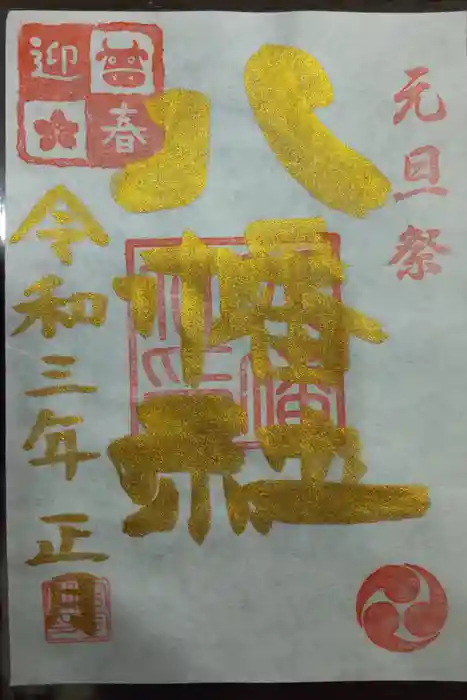 元旦祭
八幡社
迎春
令和三年正月